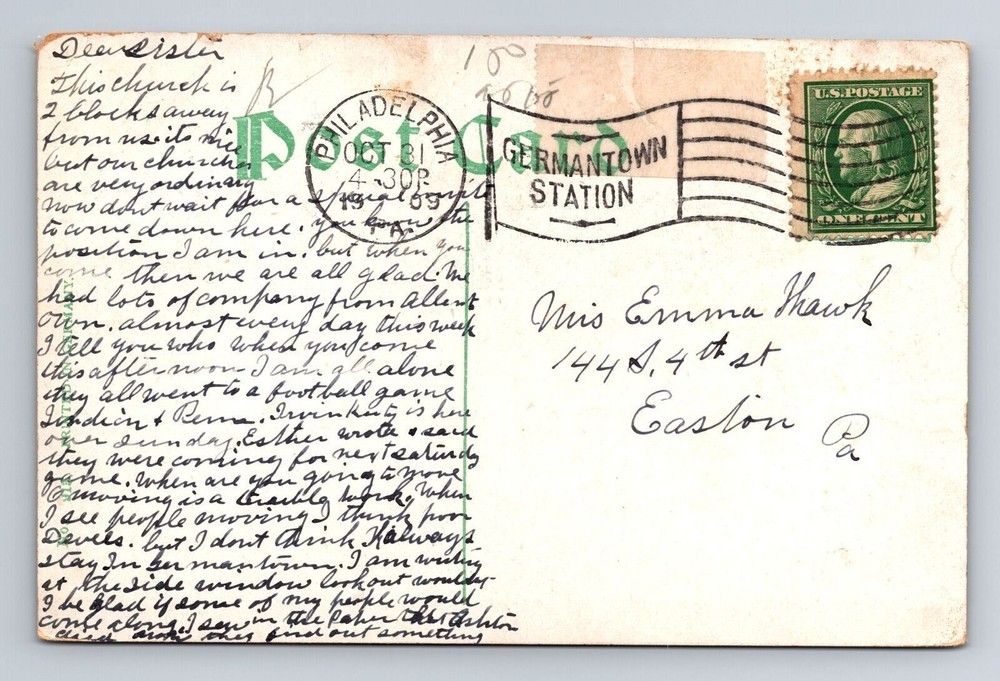 Dear Sister
This church is
2 blocks away
from us. its nice
but our churches
are very ordinary
now dont wait for a special invite
to come down here. you know the
position I am in. but when you
come then we are all glad. We
had lots of company from all ent
own. almost every day this week
I tell you who when you come
this afternoon I am all alone
they all went to a football game
Indian & Penn. Irvin Kutz is here
over Sunday. Esther wrote & said
they were coming for next saturday
game. when are you going to move
O moving is a trouble work. When
I see people moving I think poor
Devels. but I dont think I always
stay In Germantown. I am writing
at the side window lookout wouldn't
I be glad if some of my people would
come along. I seen in the Paper that Ashton
died. now they find out something
Post Card
PHILADELPHIA
OCT 31
4-30P
1909
PA.
GERMANTOWN
STATION
U.S. POSTAGE
ONE CENT
Miss Emma Hawk
144 S. 4th st
Easton
Pa